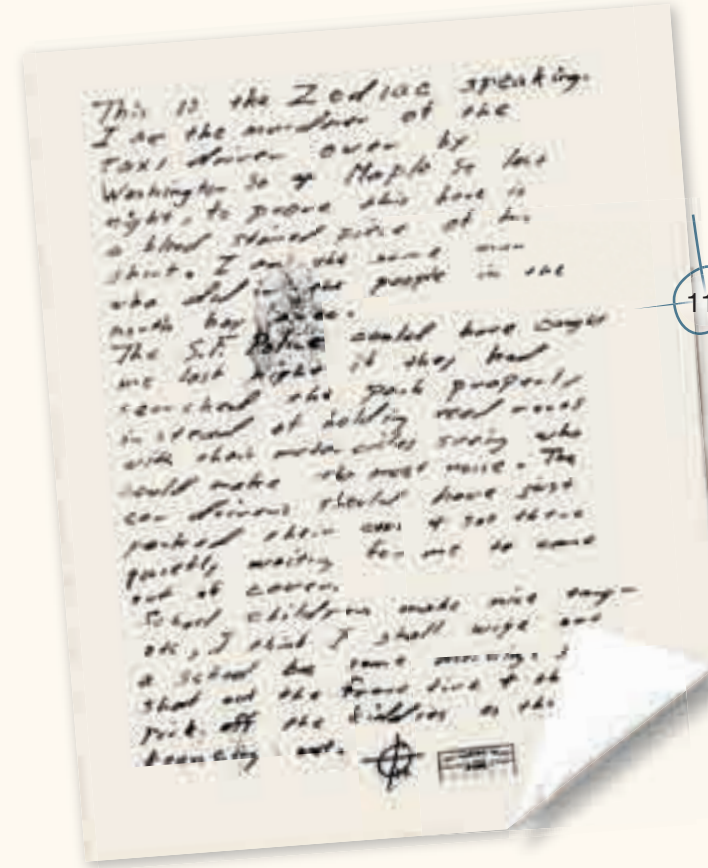 This is the Zodiac speaking.
I am the murderer of the
taxi driver over by
Washington St + Maple St last
night, to prove this here is
a blood stained piece of his
shirt. I am the same man
who did in the people in the
north bay area.
The S.F. Police could have caught
me last night if they had
searched the park properly
instead of holding road races
with their motorcicles seeing who
could make the most noise. The
car drivers should have just
parked their cars & sat there
quietly waiting for me to come
out of cover.
School children make nice targ-
ets, I think I shall wipe out
a school bus some morning.
shoot out the front tire & th
pick off the kiddies as the
bouncing out.
11